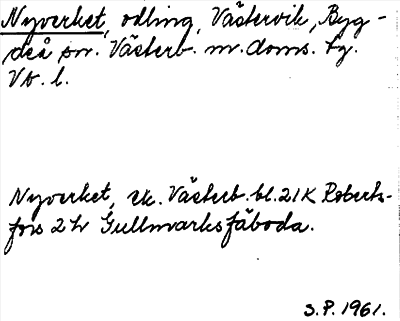 Nyverket, odling, Västervik, Byg-
deå sn. Västerb. nr. doms. ty.
Vb. l.
Nyverket, ek. Västerb. bl. 21K Roberts-
fors 2 h Gullmarksfäboda.
S.P. 1961.